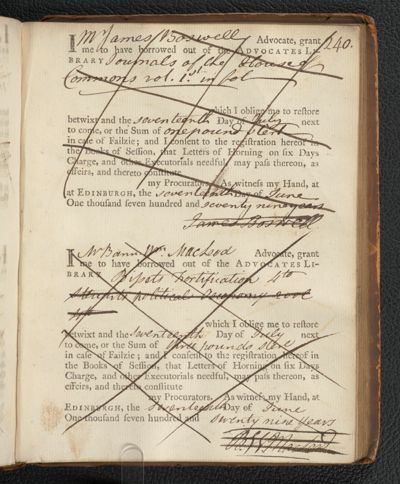 I Mr James Boswell Advocate, grant 240.
me to have borrowed out of the ADVOCATES LI-
BRARY Journals of the House of
Commons vol. 1st in fol
which I oblige me to restore
betwixt and the seventeenth Day of July next
to come, or the Sum of one pound sterl
in case of Failzie; and I consent to the registration hereof in
the Books of Session, that Letters of Horning on six Days
Charge, and other Executorials needful, may pass thereon, as
effeirs, and thereto constitute
my Procurators. As witness my Hand, at
at EDINBURGH, the seventeenth day of June
One thousand seven hundred and seventy nine years
James Boswell
I Mr Bann Wm. MacLeod Advocate, grant
me to have borrowed out of the ADVOCATES LI-
BRARY Fortification 4to
political Oeconomy
which I oblige me to restore
betwixt and the seventeenth Day of July next
to come, or the Sum of three pounds sterl
in case of Failzie; and I consent to the registration hereof in
the Books of Session, that Letters of Horning on six Days
Charge, and other Executorials needful, may pass thereon, as
effeirs, and thereto constitute
my Procurators. As witness my Hand, at
EDINBURGH, the seventeenth Day of June
One thousand seven hundred and seventy nine years